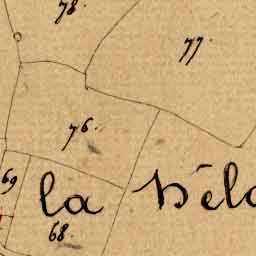 78.
77.
76.
69
la
68.